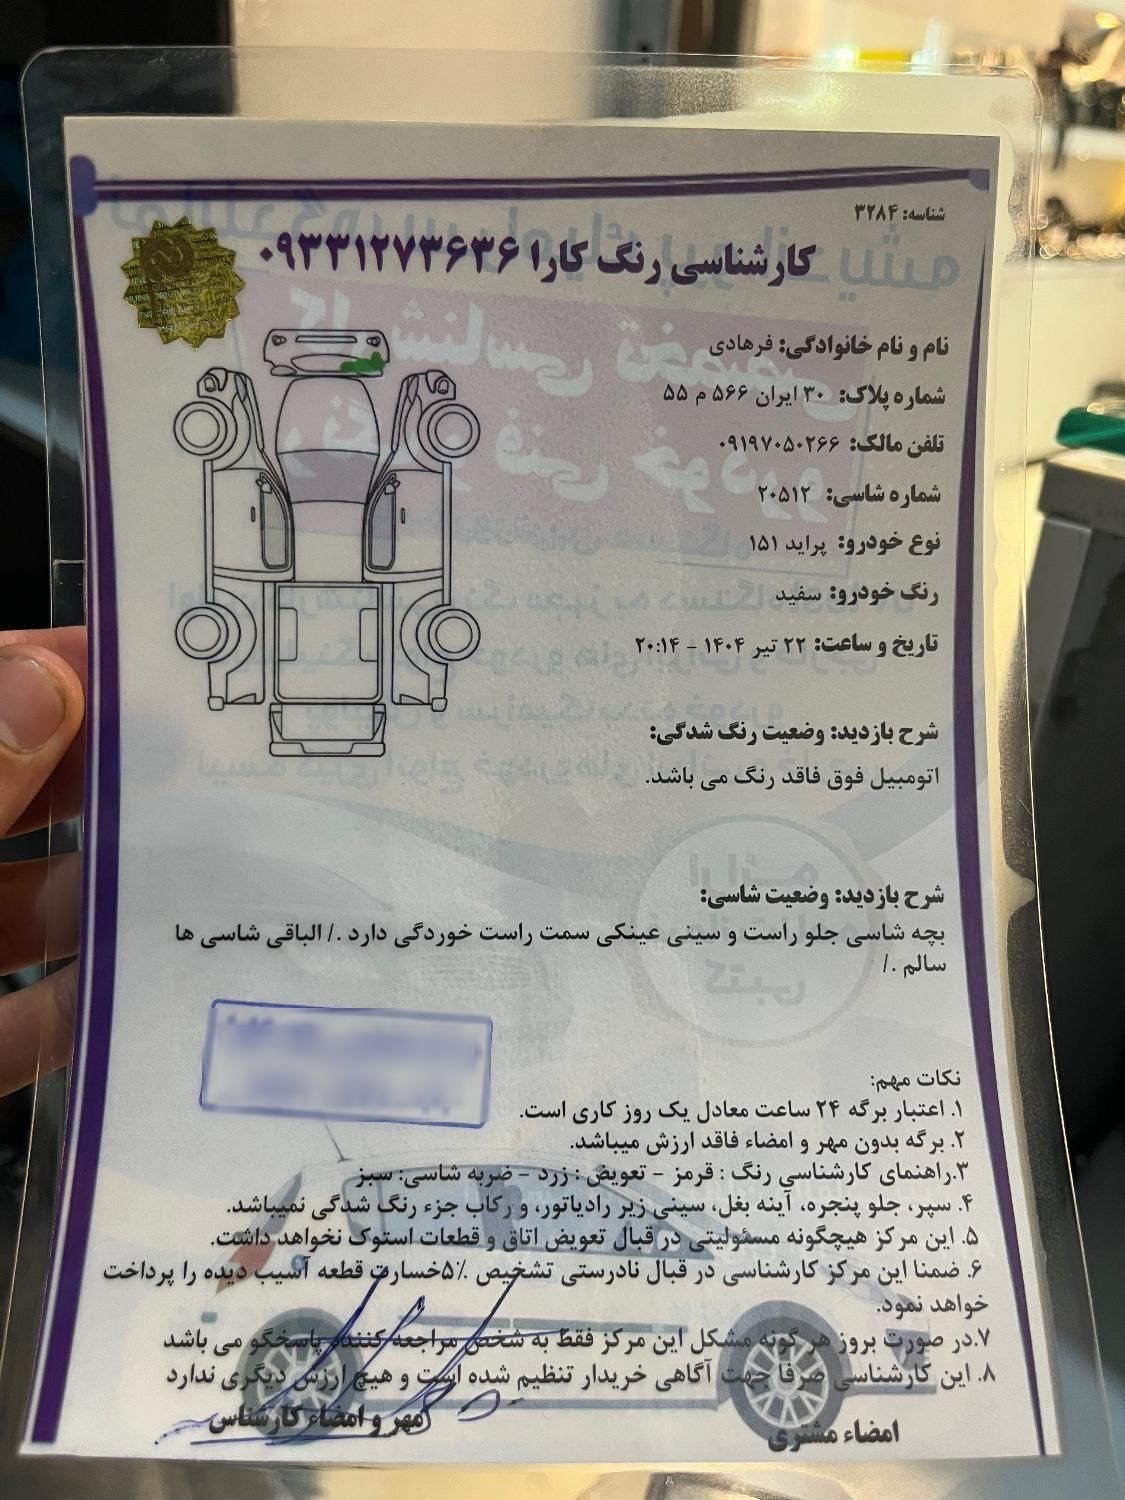 شناسه: ۳۲۸۴
کارشناسی رنگ کارا ۰۹۳۳۱۲۷۳۶۳۶
نام و نام خانوادگی: فرهادی
شماره پلاک: ۳۰ ایران ۵۶۶ م ۵۵
تلفن مالک: ۰۹۱۹۷۰۵۰۲۶۶
شماره شاسی: ۲۰۵۱۲
نوع خودرو: پراید ۱۵۱
رنگ خودرو: سفید
تاریخ و ساعت: ۲۲ تیر ۱۴۰۴ - ۲۰:۱۴
شرح بازدید: وضعیت رنگ شدگی:
اتومبیل فوق فاقد رنگ می باشد.
شرح بازدید: وضعیت شاسی:
بچه شاسی جلو راست و سینی عینکی سمت راست خوردگی دارد ./ الباقی شاسی ها
سالم ./
نکات مهم:
۱. اعتبار برگه ۲۴ ساعت معادل یک روز کاری است.
۲. برگه بدون مهر و امضاء فاقد ارزش میباشد.
۳.راهنمای کارشناسی رنگ : قرمز - تعویض : زرد - ضربه شاسی: سبز
۴. سپر، جلو پنجره، آینه بغل، سینی زیر رادیاتور، و رکاب جزء رنگ شدگی نمیباشد.
۵. این مرکز هیچگونه مسئولیتی در قبال تعویض اتاق و قطعات استوک نخواهد داشت.
۶. ضمنا این مرکز کارشناسی در قبال نادرستی تشخیص ۵٪خسارت قطعه آسیب دیده را پرداخت
خواهد نمود.
۷.در صورت بروز هر گونه مشکل این مرکز فقط به شخص مراجعه کننده پاسخگو می باشد
۸. این کارشناسی صرفا جهت آگاهی خریدار تنظیم شده است و هیچ ارزش دیگری ندارد
امضاء مشتری
مهر و امضاء کارشناس